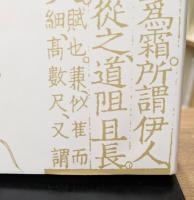 爲霜。所謂伊人
從之、道阻且長。
賦也。蒹似萑而
細、高數尺、又謂